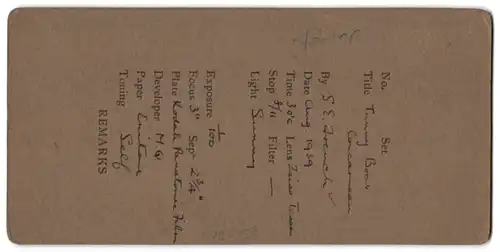 No. Set
Title Tunny Boat
Concarneau
By S. E. French
Date Aug 1939
Time 3 o'c Lens Zeiss Tessar
Stop f/11 Filter —
Light Sunny
Exposure 1/100
Focus 3" Sep 2 3/4"
Plate Kodak Panatomic Film
Developer M.Q.
Paper
Toning Self
REMARKS